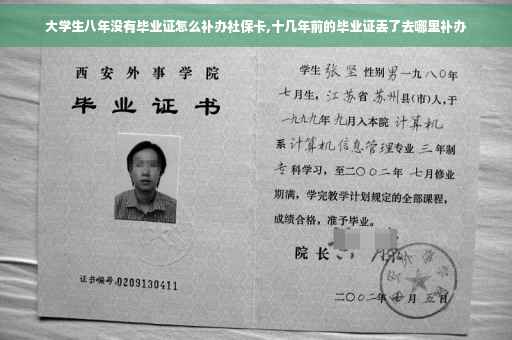 大学生八年没有毕业证怎么补办社保卡,十几年前的毕业证丢了去哪里补办
西安外事学院
毕业证书
证书编号:0209130411
学生 张坚 性别 男 一九八〇年
七月生,江苏省苏州县(市)人,于
一九九九年九月入本院 计算机
系 计算机信息管理专业 三年制
专科学习,至二〇〇二年七月修业
期满,学完教学计划规定的全部课程,
成绩合格,准予毕业。
院长
二〇〇二年 月五日